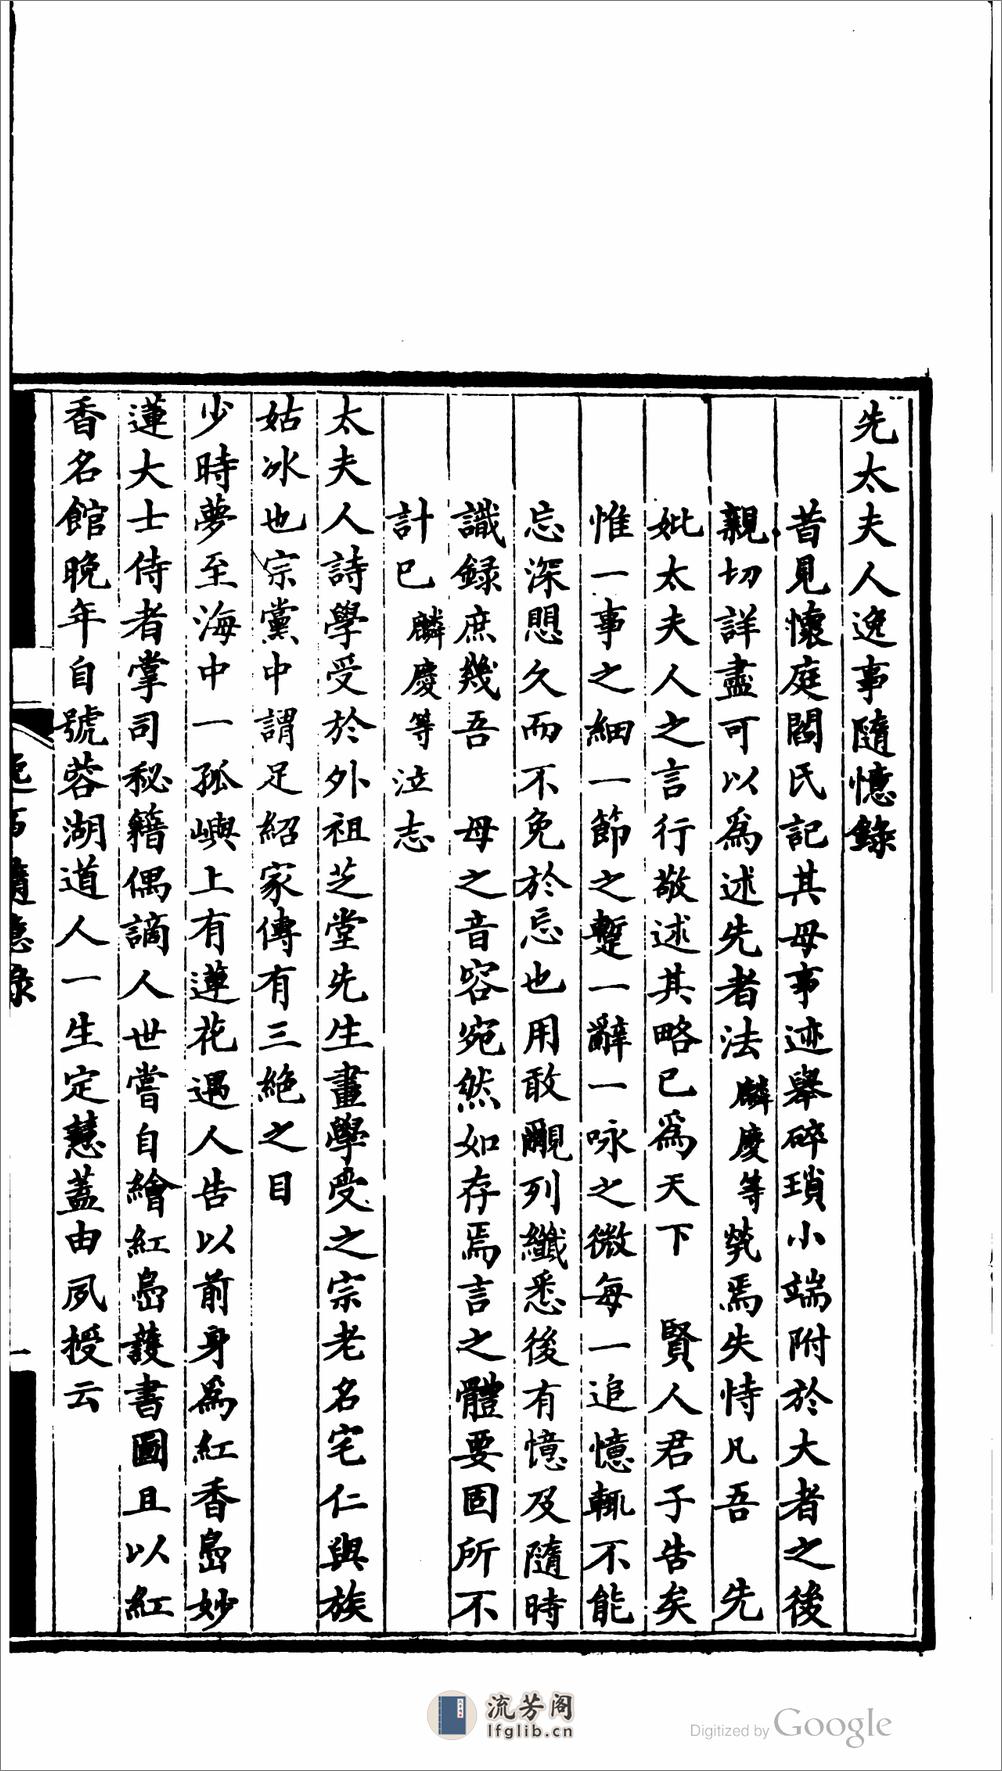 先太夫人逸事隨憶錄
昔見懷庭閻氏記其母事迹舉碎瑣小端附於大者之後
親切詳盡可以爲述先者法麟慶等煢焉失恃凡吾 先
妣太夫人之言行敬述其略已爲天下 賢人君子告矣
惟一事之細一節之蹔一辭一咏之微每一追憶輒不能
忘深思久而不免於忘也用敢覼列纖悉後有憶及隨時
識録庶幾吾 母之音容宛然如存焉言之體要固所不
計已麟慶等泣志
太夫人詩學受於外祖芝堂先生畫學受之宗老名宅仁與族
姑冰也宗黨中謂足紹家傳有三絶之目
少時夢至海中一孤嶼上有蓮花遇人告以前身爲紅香島妙
蓮大士侍者掌司秘籍偶謫人世嘗自繪紅島護書圖且以紅
香名館晚年自號蓉湖道人一生定慧蓋由夙授云
隨憶錄
一
流芳阁
lfglib.cn
Digitized by Google